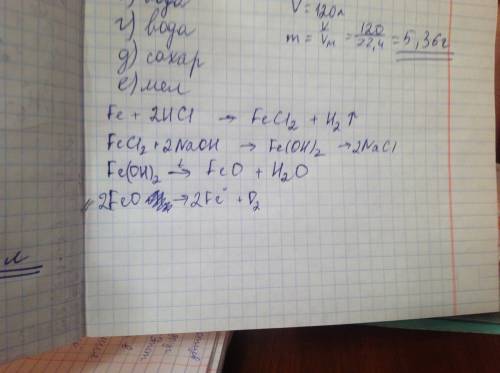 г) вода
д) сахар
е) мел
V = 120л
m = V/Vm = 120/22,4 = 5,36г
Fe + 2HCl → FeCl₂ + H₂↑
FeCl₂ + 2NaOH → Fe(OH)₂ → 2NaCl
Fe(OH)₂ →t FeO + H₂O
2FeO → 2Fe + O₂
л